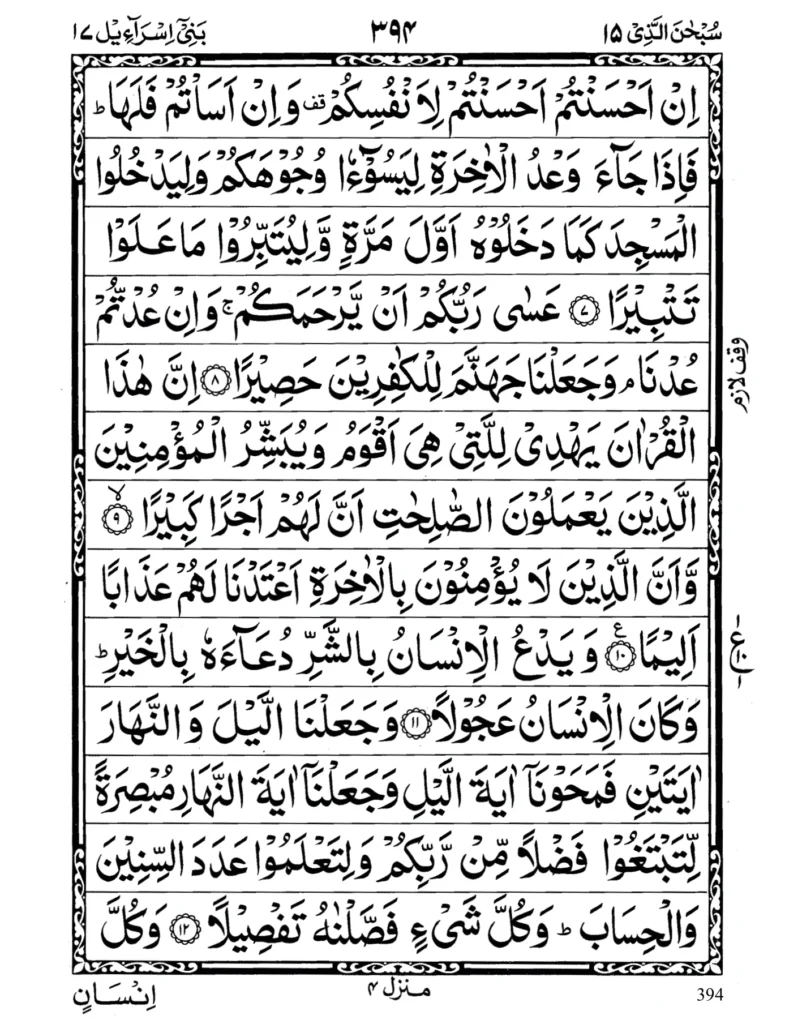 سُبْحٰنَ الَّذِیْ ۱۵ ۳۹۴ بَنِیْۤ اِسْرَآءِیْل ۱۷
اِنْ اَحْسَنْتُمْ اَحْسَنْتُمْ لِاَنْفُسِكُمْ قف وَ اِنْ اَسَاْتُمْ فَلَهَا ؕ
فَاِذَا جَآءَ وَعْدُ الْاٰخِرَةِ لِیَسُوْٓءٗا وُجُوْهَكُمْ وَ لِیَدْخُلُوا
الْمَسْجِدَ كَمَا دَخَلُوْهُ اَوَّلَ مَرَّةٍ وَّ لِیُتَبِّرُوْا مَا عَلَوْا
تَتْبِیْرًا ۷ عَسٰی رَبُّكُمْ اَنْ یَّرْحَمَكُمْ ۚ وَ اِنْ عُدْتُّمْ
عُدْنَا ۘ وَ جَعَلْنَا جَهَنَّمَ لِلْكٰفِرِیْنَ حَصِیْرًا ۸ اِنَّ هٰذَا
وقف لازم
الْقُرْاٰنَ یَهْدِیْ لِلَّتِیْ هِیَ اَقْوَمُ وَ یُبَشِّرُ الْمُؤْمِنِیْنَ
الَّذِیْنَ یَعْمَلُوْنَ الصّٰلِحٰتِ اَنَّ لَهُمْ اَجْرًا كَبِیْرًا ۙ ۹
وَّ اَنَّ الَّذِیْنَ لَا یُؤْمِنُوْنَ بِالْاٰخِرَةِ اَعْتَدْنَا لَهُمْ عَذَابًا
اَلِیْمًا ۱۰ ع وَ یَدْعُ الْاِنْسَانُ بِالشَّرِّ دُعَآءَهٗ بِالْخَیْرِ ؕ
۱ ع ۱۰ ۱
وَ كَانَ الْاِنْسَانُ عَجُوْلًا ۱۱ وَ جَعَلْنَا الَّیْلَ وَ النَّهَارَ
اٰیَتَیْنِ فَمَحَوْنَاۤ اٰیَةَ الَّیْلِ وَ جَعَلْنَاۤ اٰیَةَ النَّهَارِ مُبْصِرَةً
لِّتَبْتَغُوْا فَضْلًا مِّنْ رَّبِّكُمْ وَ لِتَعْلَمُوْا عَدَدَ السِّنِیْنَ
وَ الْحِسَابَ ؕ وَ كُلَّ شَیْءٍ فَصَّلْنٰهُ تَفْصِیْلًا ۱۲ وَ كُلَّ
اِنْسَانٍ منزل ۴ 394